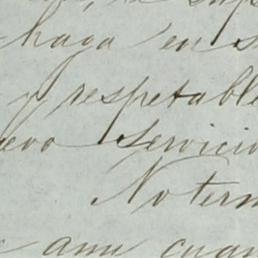 haga en s
y respetable
evo servicio
No term
ami cuan